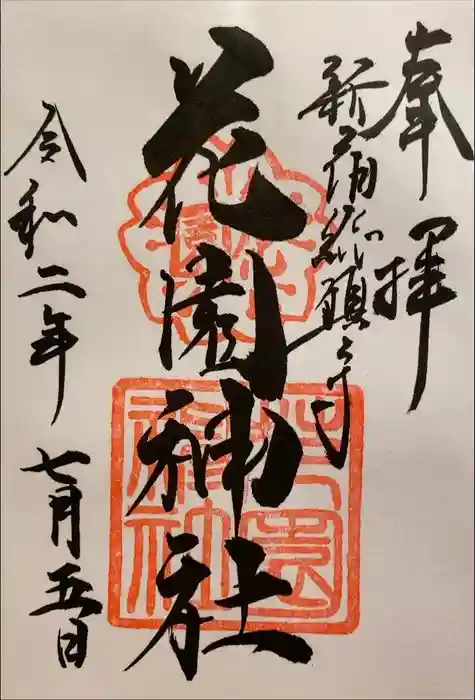 奉拝
新宿総鎮守
花園神社
令和二年 七月五日
花園
神社